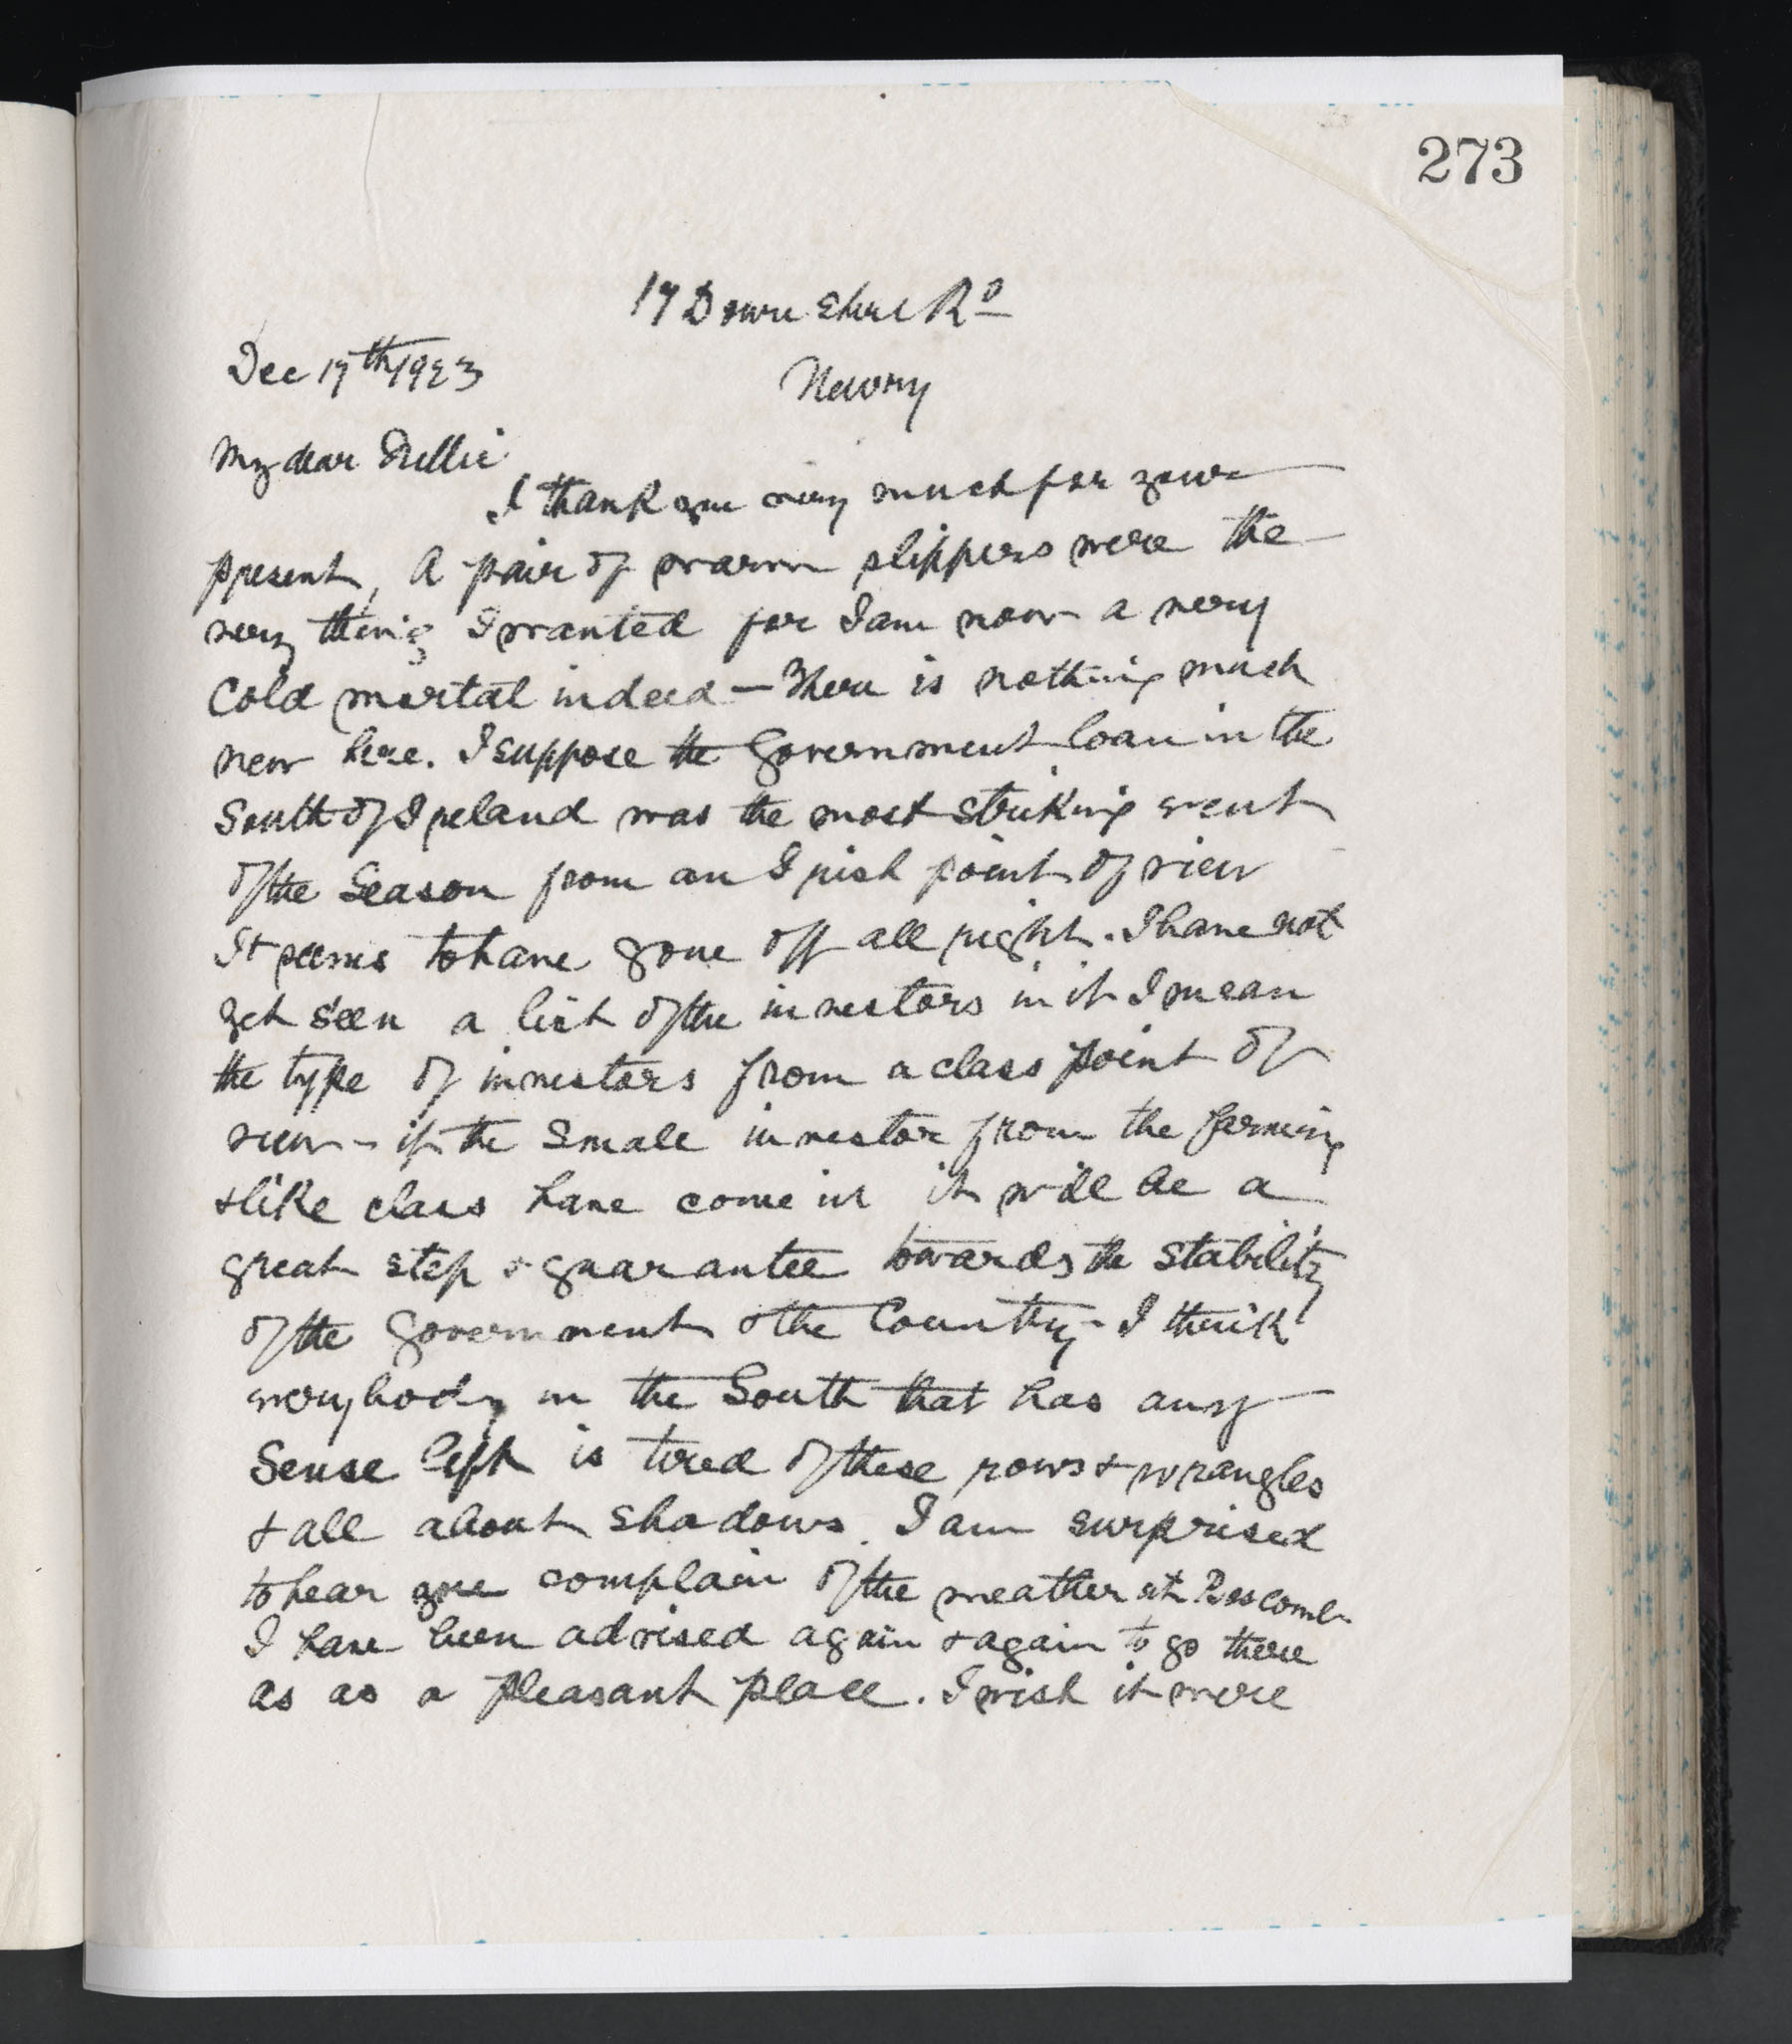 273
17 Downshire Rd
Dec 17th 1923
Newry
My dear Nellie
I thank you very much for your
present, A pair of warm slippers were the
very thing I wanted for I am now a very
Cold mortal indeed — There is nothing much
new here. I suppose the Government loan in the
South of Ireland was the most striking event
of the Season from an Irish point of view
It seems to have gone off all right. I have not
yet seen a list of the investors in it I mean
the type of investors from a class point of
view - if the small investor from the farming
& like class have come in it will be a
great step & guarantee towards the stability
of the Government & the Country - I think
everybody in the South that has any
Sense left is tired of these rows & wrangles
& all about shadows. I am surprised
to hear you complain of the weather at Boscombe
I have been advised again & again to go there
as as a pleasant place. I wish it were